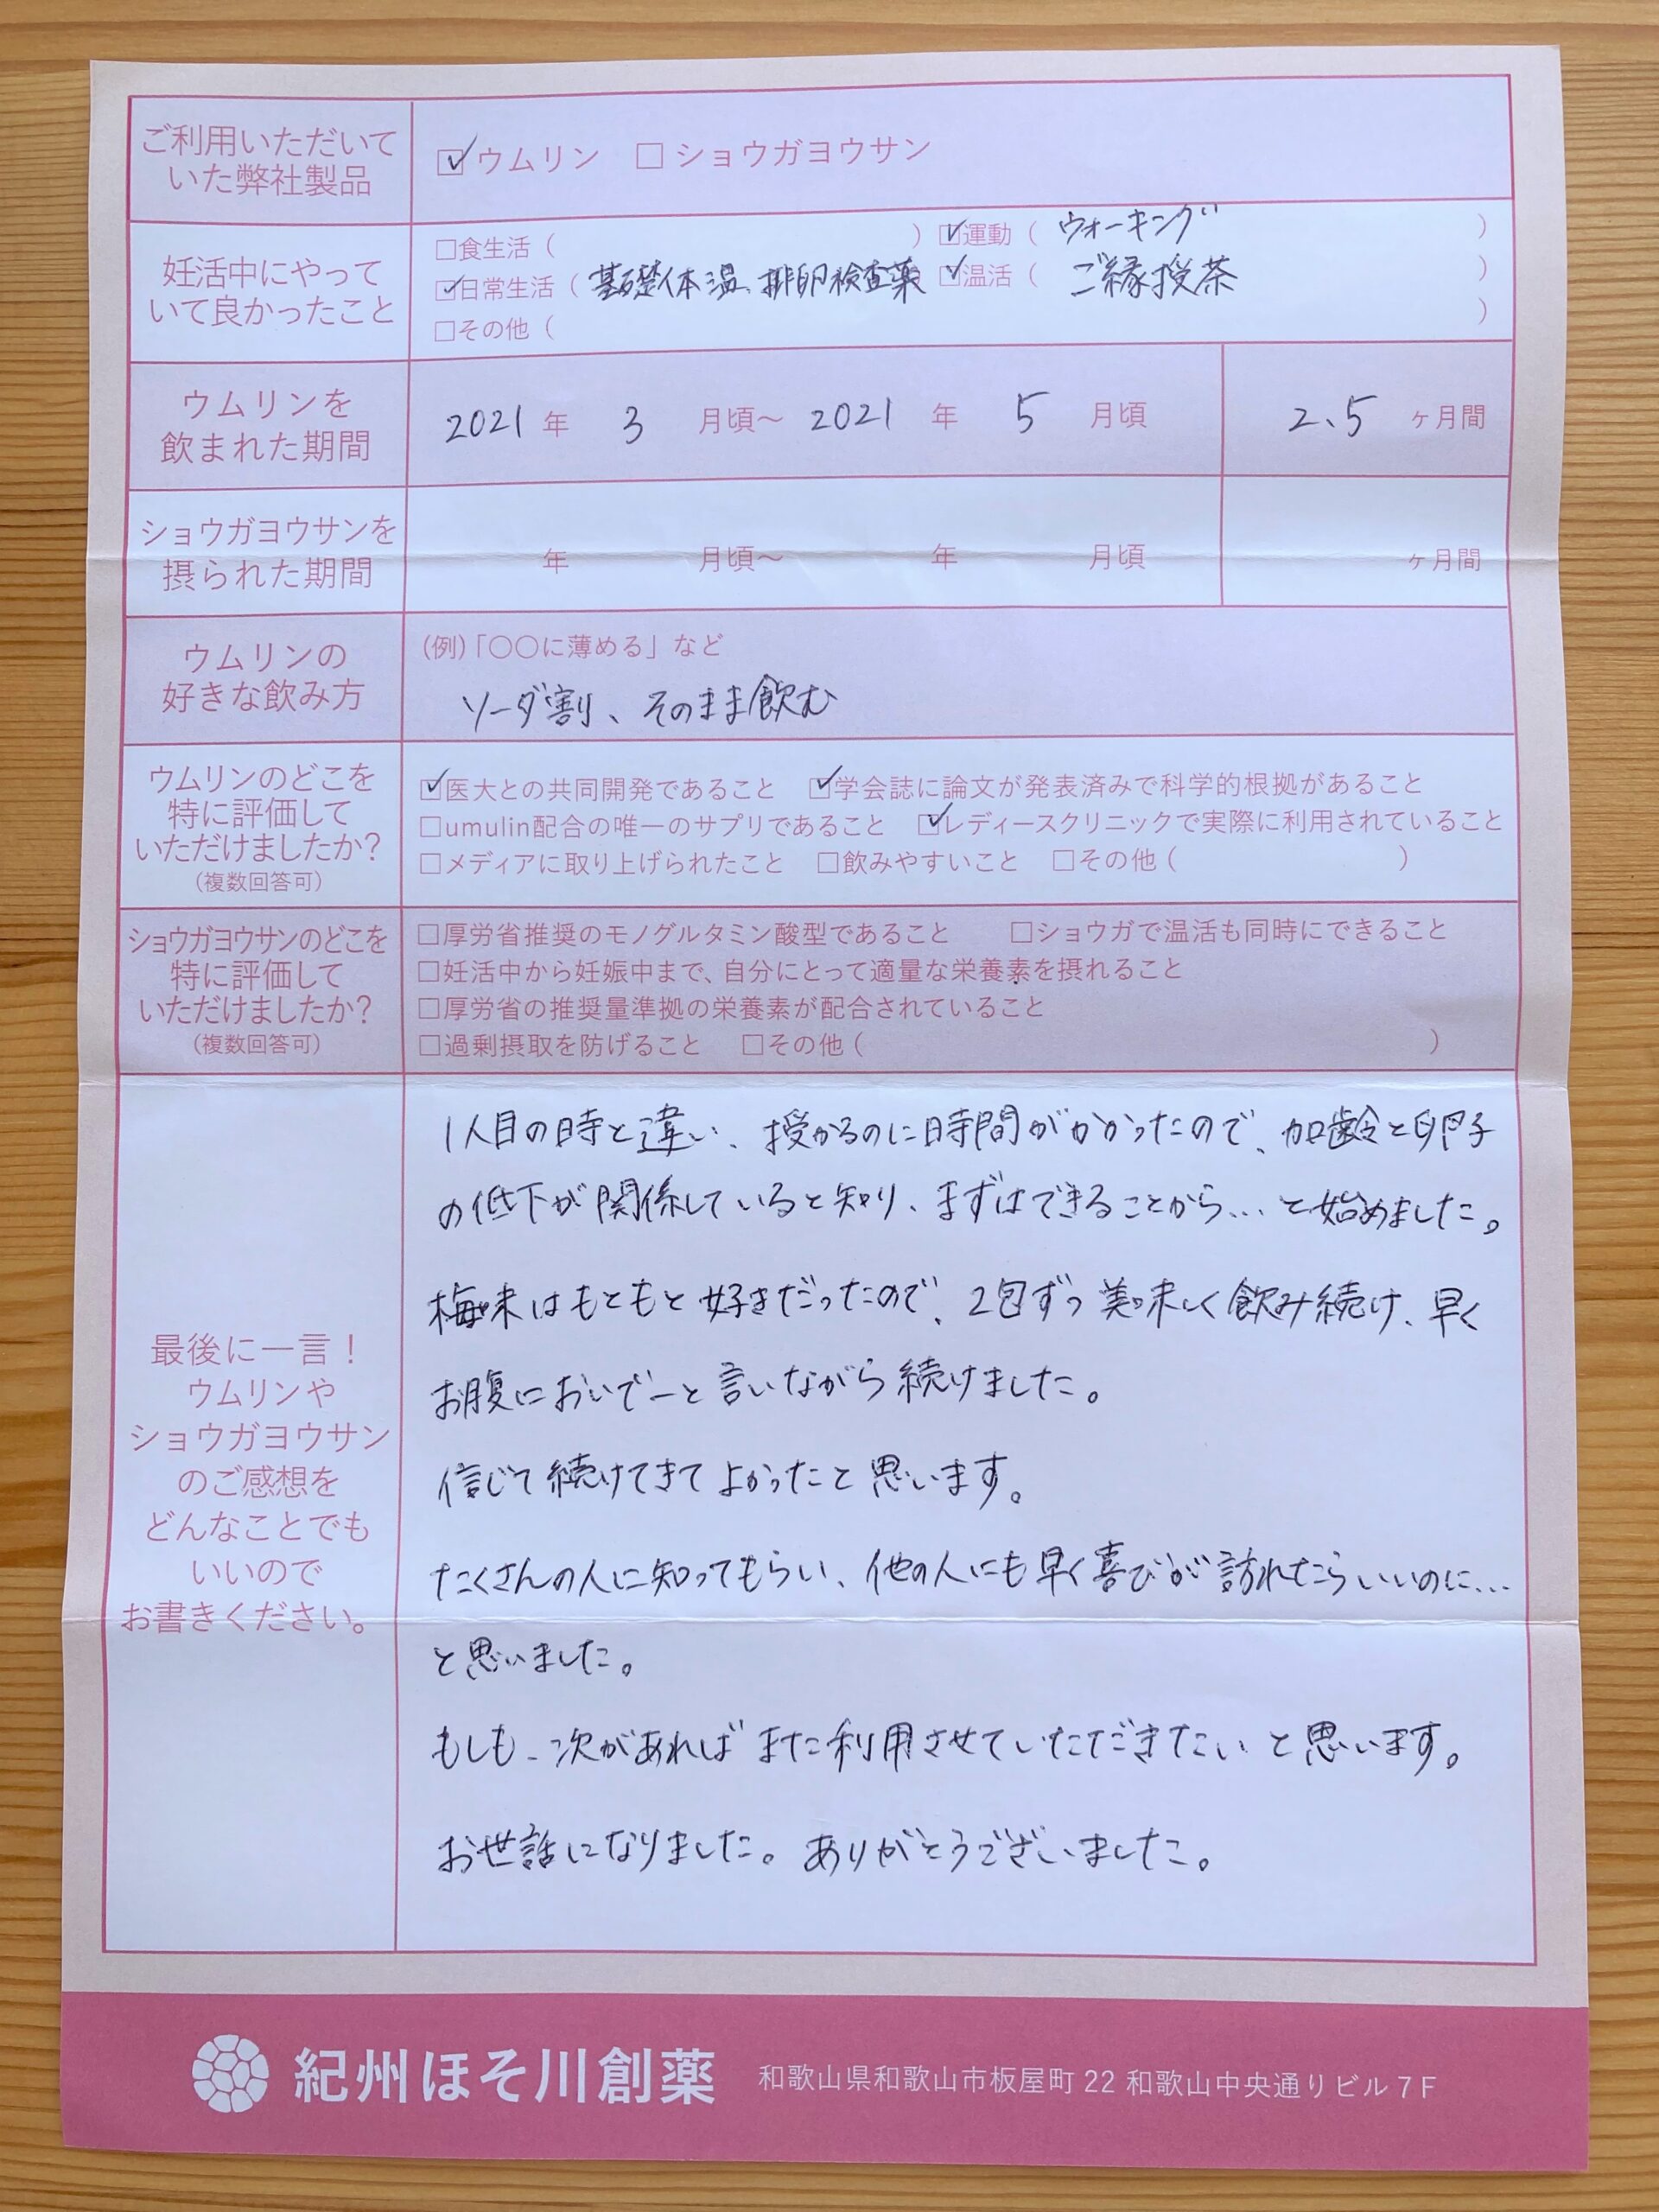 ご利用いただいて
いた弊社製品
☑ウムリン □ショウガヨウサン
妊活中にやって
いて良かったこと
□食生活（ ） ☑運動（ ウォーキング ）
☑日常生活（ 基礎体温、排卵検査薬 ☑温活（ ご縁授茶 ）
□その他（ ）
ウムリンを
飲まれた期間
2021 年 3 月頃〜 2021 年 5 月頃 2、5 ヶ月間
ショウガヨウサンを
摂られた期間
年 月頃〜 年 月頃 ヶ月間
ウムリンの
好きな飲み方
(例)「〇〇に薄める」など
ソーダ割、そのまま飲む
ウムリンのどこを
特に評価して
いただけましたか?
(複数回答可)
☑医大との共同開発であること ☑学会誌に論文が発表済みで科学的根拠があること
□umulin配合の唯一のサプリであること ☑レディースクリニックで実際に利用されていること
□メディアに取り上げられたこと □飲みやすいこと □その他（ ）
ショウガヨウサンのどこを
特に評価して
いただけましたか?
(複数回答可)
□厚労省推奨のモノグルタミン酸型であること □ショウガで温活も同時にできること
□妊活中から妊娠中まで、自分にとって適量な栄養素を摂れること
□厚労省の推奨量準拠の栄養素が配合されていること
□過剰摂取を防げること □その他（ ）
最後に一言！
ウムリンや
ショウガヨウサン
のご感想を
どんなことでも
いいので
お書きください。
1人目の時と違い、授かるのに時間がかかったので、加齢と卵子
の低下が関係していると知り、まずはできることから… と始めました。
梅味はもともと好きだったので、2包ずつ美味しく飲み続け、早く
お腹においでーと言いながら続けました。
信じて続けてきてよかったと思います。
たくさんの人に知ってもらい、他の人にも早く喜びが訪れたらいいのに…
と思いました。
もしも、次があればまた利用させていただきたいと思います。
お世話になりました。ありがとうございました。
紀州ほそ川創薬 和歌山県和歌山市板屋町 22 和歌山中央通りビル 7 F